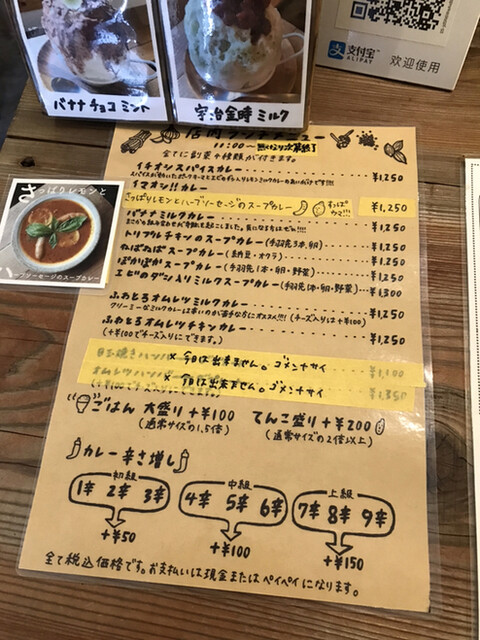 バナナチョコミント
宇治金時ミルク
支付宝
ALIPAY
欢迎使用
店内ランチメニュー
11:00〜無くなり次第終了
全てに副菜4種類が付きます。
イチオシスパイスカレー ¥1,250
イマオシ!!カレー
さっぱりレモンとハーブソーセージのスープカレー ¥1,250
さっぱりレモンと
ハーブソーセージのスープカレー
バナナミルクカレー ¥1,250
トリプルチキンのスープカレー(手羽先3本・卵) ¥1,250
ねばねばスープカレー(納豆・オクラ) ¥1,250
ぽかぽかスープカレー(手羽先1本・卵・野菜) ¥1,250
エビのダシ入りミルクスープカレー(手羽先1本・卵・野菜) ¥1,300
ふわとろオムレツミルクカレー ¥1,250
クリーミーなミルクカレーは辛いのが苦手な方にオススメ!!!(チーズ入りは+¥100)
ふわとろオムレツチキンカレー ¥1,250
(+¥100でチーズ入りにできます。)
× 今日は出来ません。ゴメンナサイ ¥1,100
× 今日は出来ません。ゴメンナサイ ¥1,350
ごはん 大盛り+¥100 てんこ盛り+¥200
(通常サイズの1.5倍) (通常サイズの2倍以上)
カレー辛さ増し
初級 中級 上級
1辛 2辛 3辛 4辛 5辛 6辛 7辛 8辛 9辛
+¥50 +¥100 +¥150
全て税込価格です。お支払いは現金またはペイペイになります。